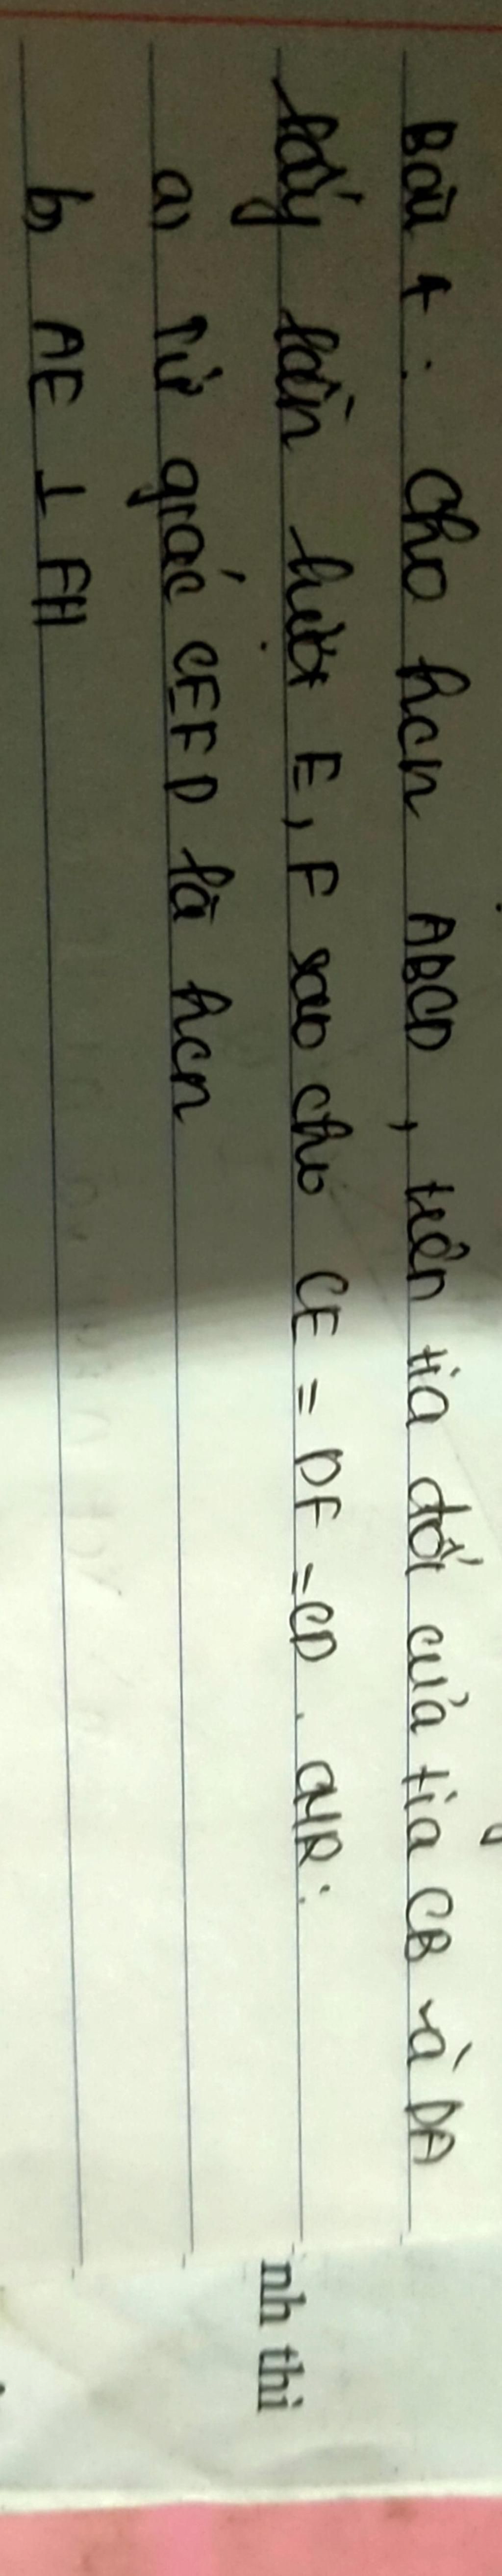 Bài 4: Cho hcn ABCD, trên tia đối của tia CB và DA
lấy lần lượt E, F sao cho CE = DF = CD. CMR:
a) Tứ giác CEFD là hcn
b) AE ⊥ FH
nh thì